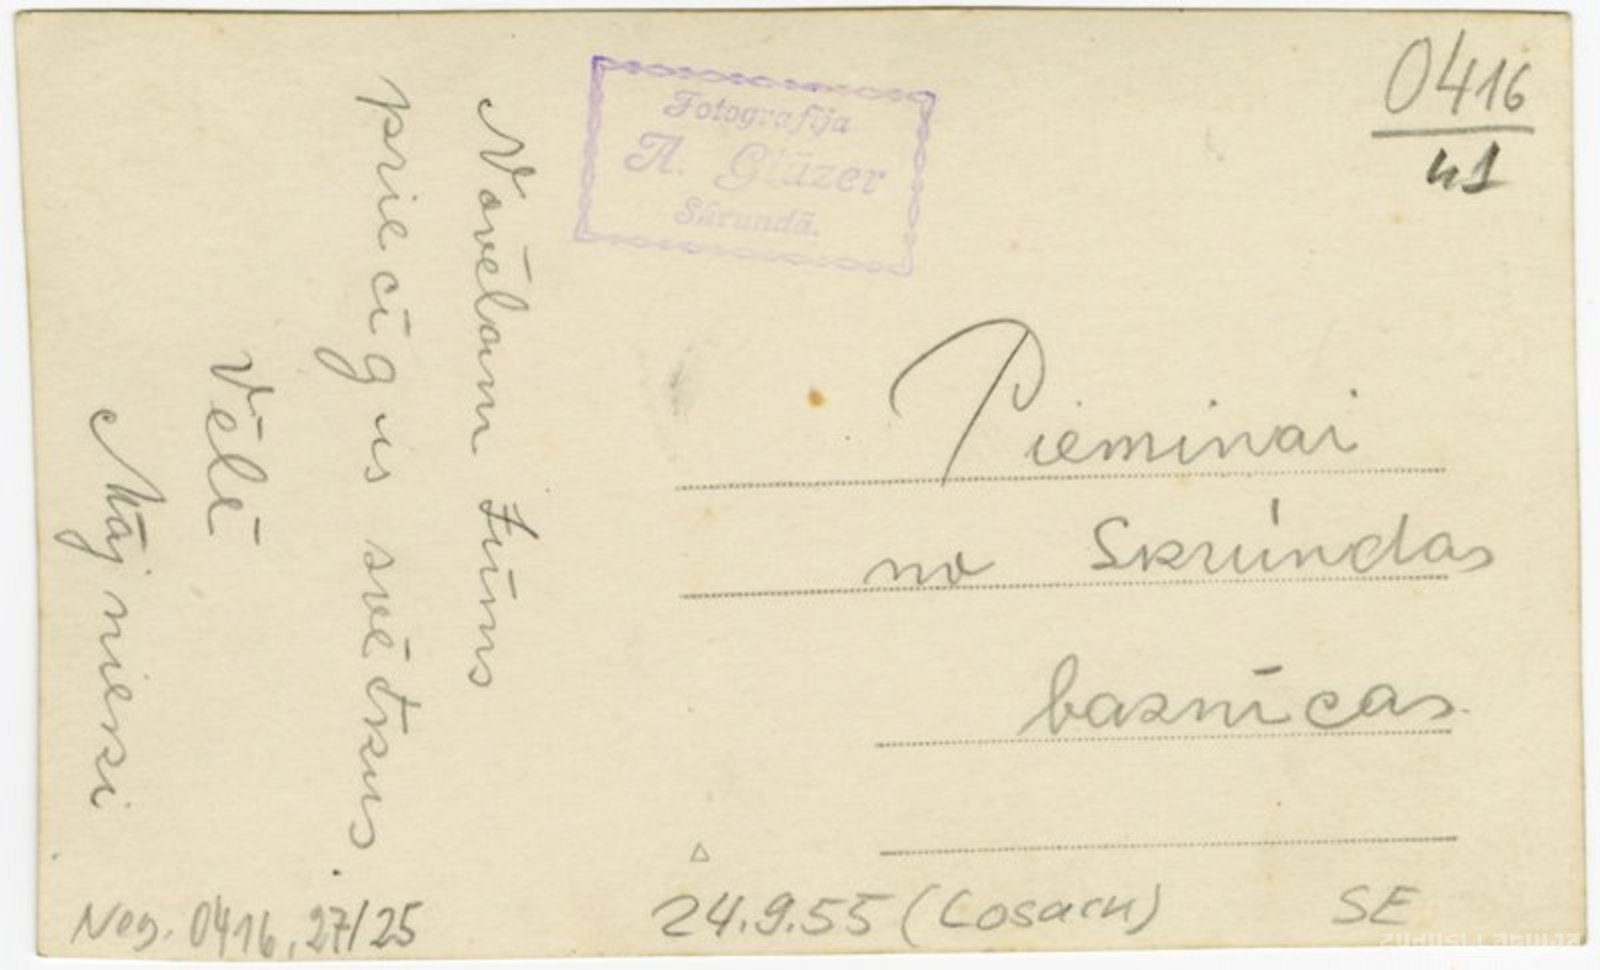 Novēlam Jums
priecīgus svētkus
Vēlē
Mājnieki
Fotografija
A. Glūzer
Skrundā.
0416
41
Pieminai
no Skrundas
baznīcas.
Neg. 0416, 27/25
24.9.55 (Losach)
SE
zudusi Latvija